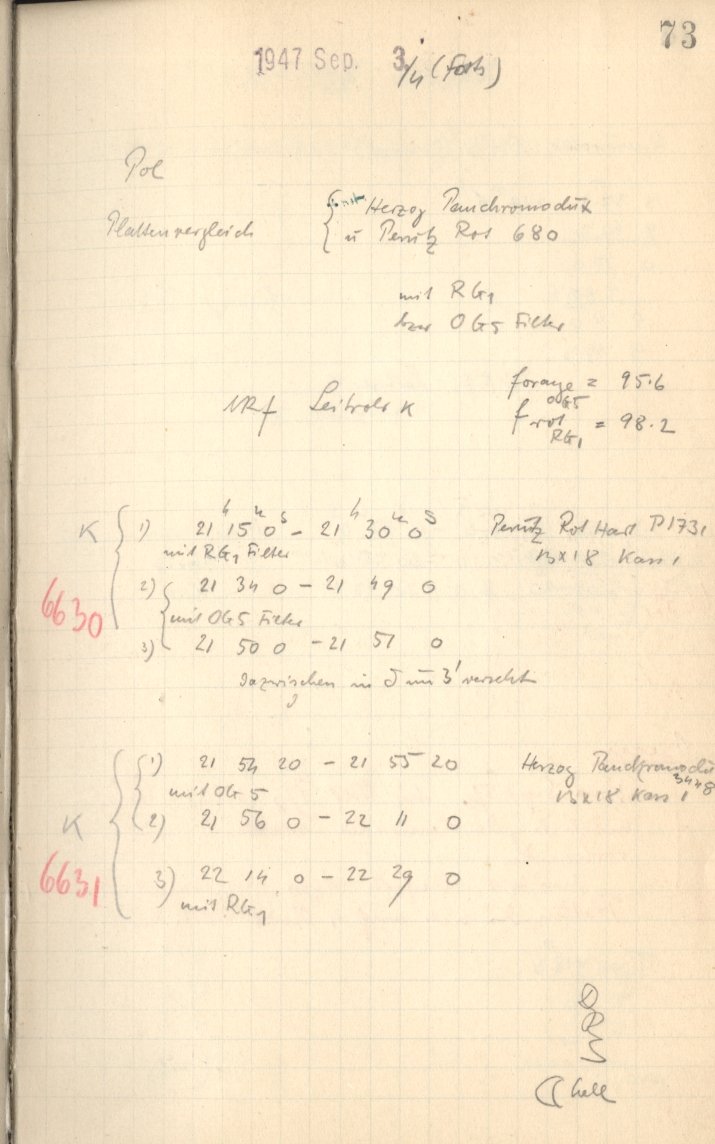 73
1947 Sep. 3/4 (Forts)
Pol
Plattenvergleich
mit Herzog Panchromodux
u Perutz Rot 680
mit RG1
bzw OG5 Filter
f orange = 95.6
OG5
Leitrohr K
f rot = 98.2
RG1
K
1) 21h 15m 0s - 21h 30m 0s
Perutz Rot Hart P1731
mit RG1 Filter
13x18 Kass 1
6630
2) 21 34 0 - 21 49 0
mit OG5 Filter
3) 21 50 0 - 21 51 0
dazwischen in δ um 3' versetzt
1) 21 54 20 - 21 55 20
Herzog Panchromodux
3448
mit OG 5
13x18 Kass 1
K
2) 21 56 0 - 22 11 0
6631
3) 22 14 0 - 22 29 0
mit RG1
hell